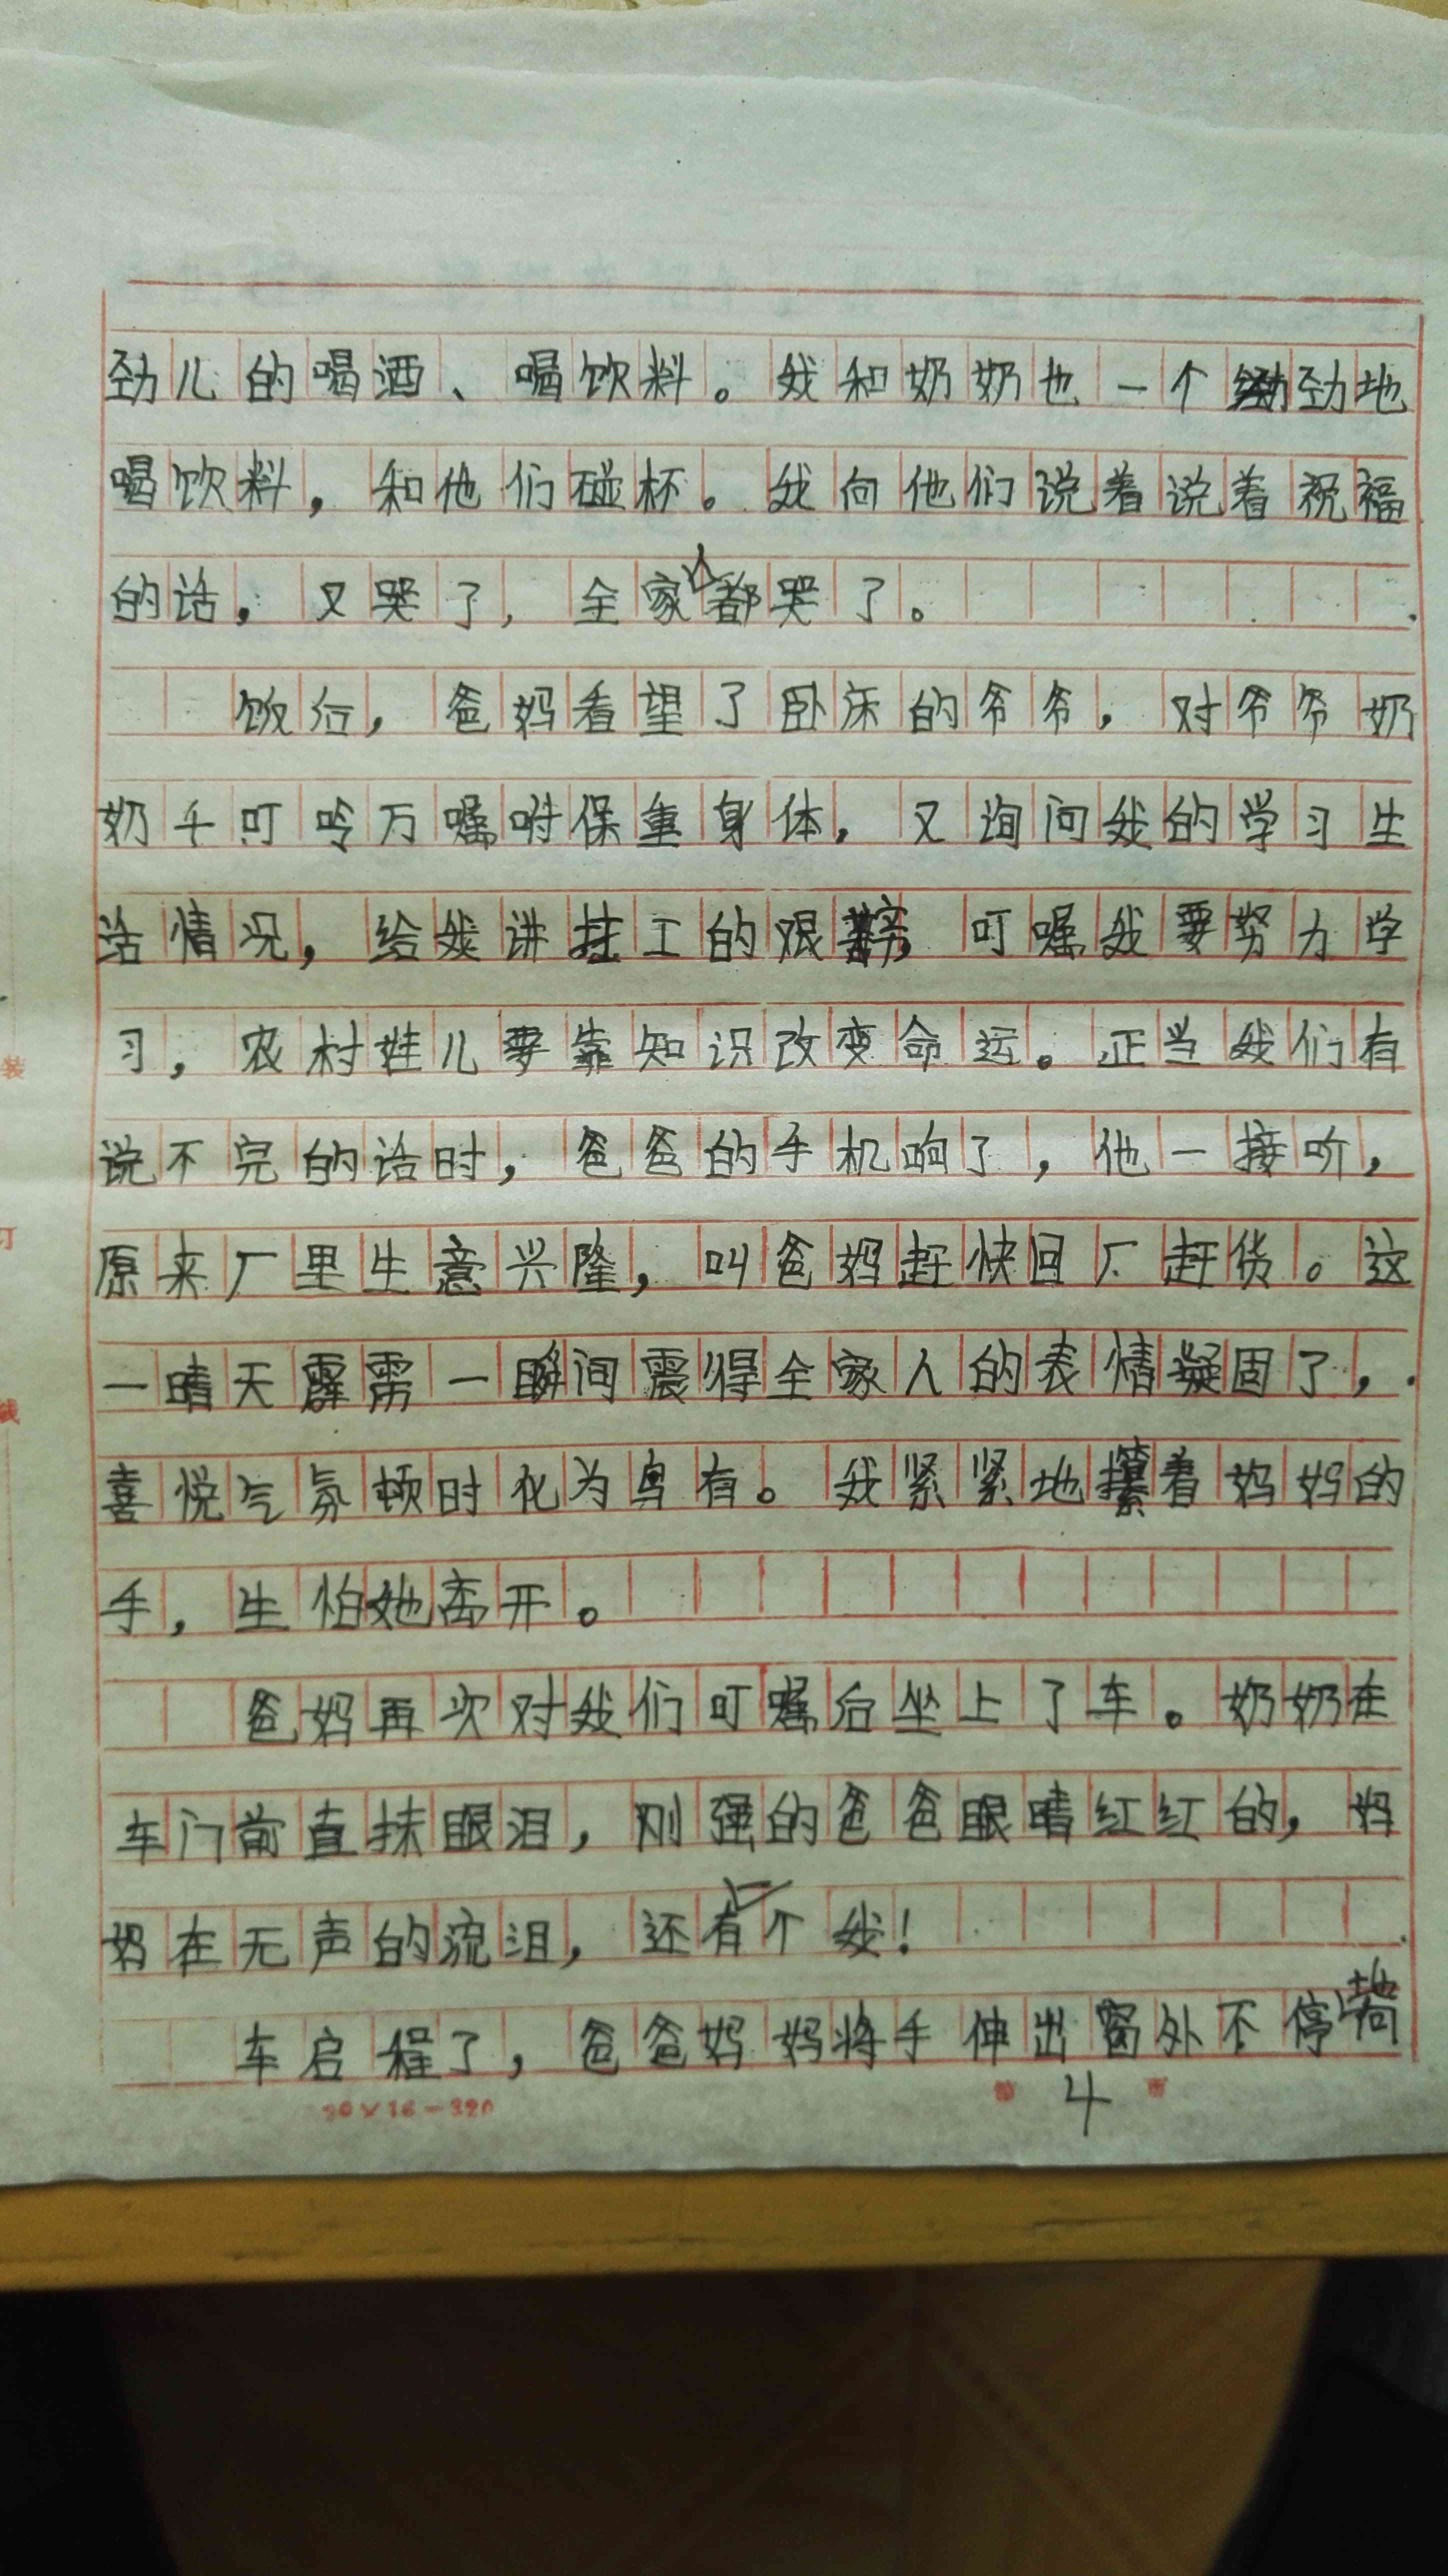 劲儿的喝酒、喝饮料。我和奶奶也一个劲地
喝饮料，和他们碰杯。我向他们说着说着祝福
的话，又哭了，全家人都哭了。
饭后，爸妈看望了卧床的爷爷，对爷爷奶
奶千叮咛万嘱咐保重身体，又询问我的学习生
活情况，给我讲打工的艰辛，叮嘱我要努力学
习，农村娃儿要靠知识改变命运。正当我们有
说不完的话时，爸爸的手机响了，他一接听，
原来厂里生意兴隆，叫爸妈赶快回厂赶货。这
一晴天霹雳一瞬间震得全家人的表情凝固了，
喜悦气氛顿时化为乌有。我紧紧地攥着妈妈的
手，生怕她离开。
爸妈再次对我们叮嘱后坐上了车。奶奶在
车门前直抹眼泪，刚强的爸爸眼睛红红的，妈
妈在无声的流泪，还有个我！
车启程了，爸爸妈妈将手伸出窗外不停地
20×16=320
4
装
订
线